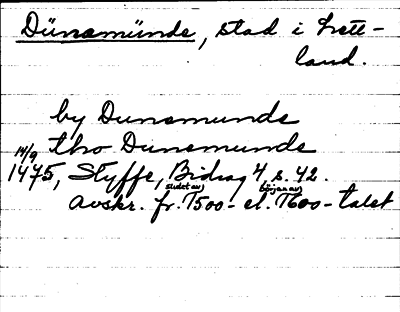 Dünamünde, stad i Lett-
land.
by Dunemunde
tho Dunemunde
14/9
1475, Styffe, Bidrag 4, s. 42.
slutet av början av
Avskr. fr. 1500- el. 1600-talet